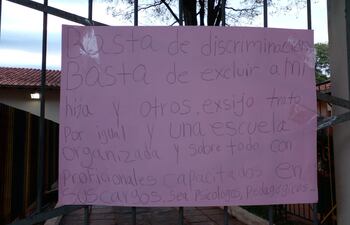 Basta de discriminacion
Basta de excluir a mi
hija y otros. exsijo trato
Por igual y una escuela
organizada y sobre todo con
proficionales capacitados en
sus cargos. Sea Psicologos, Pedagogicos-